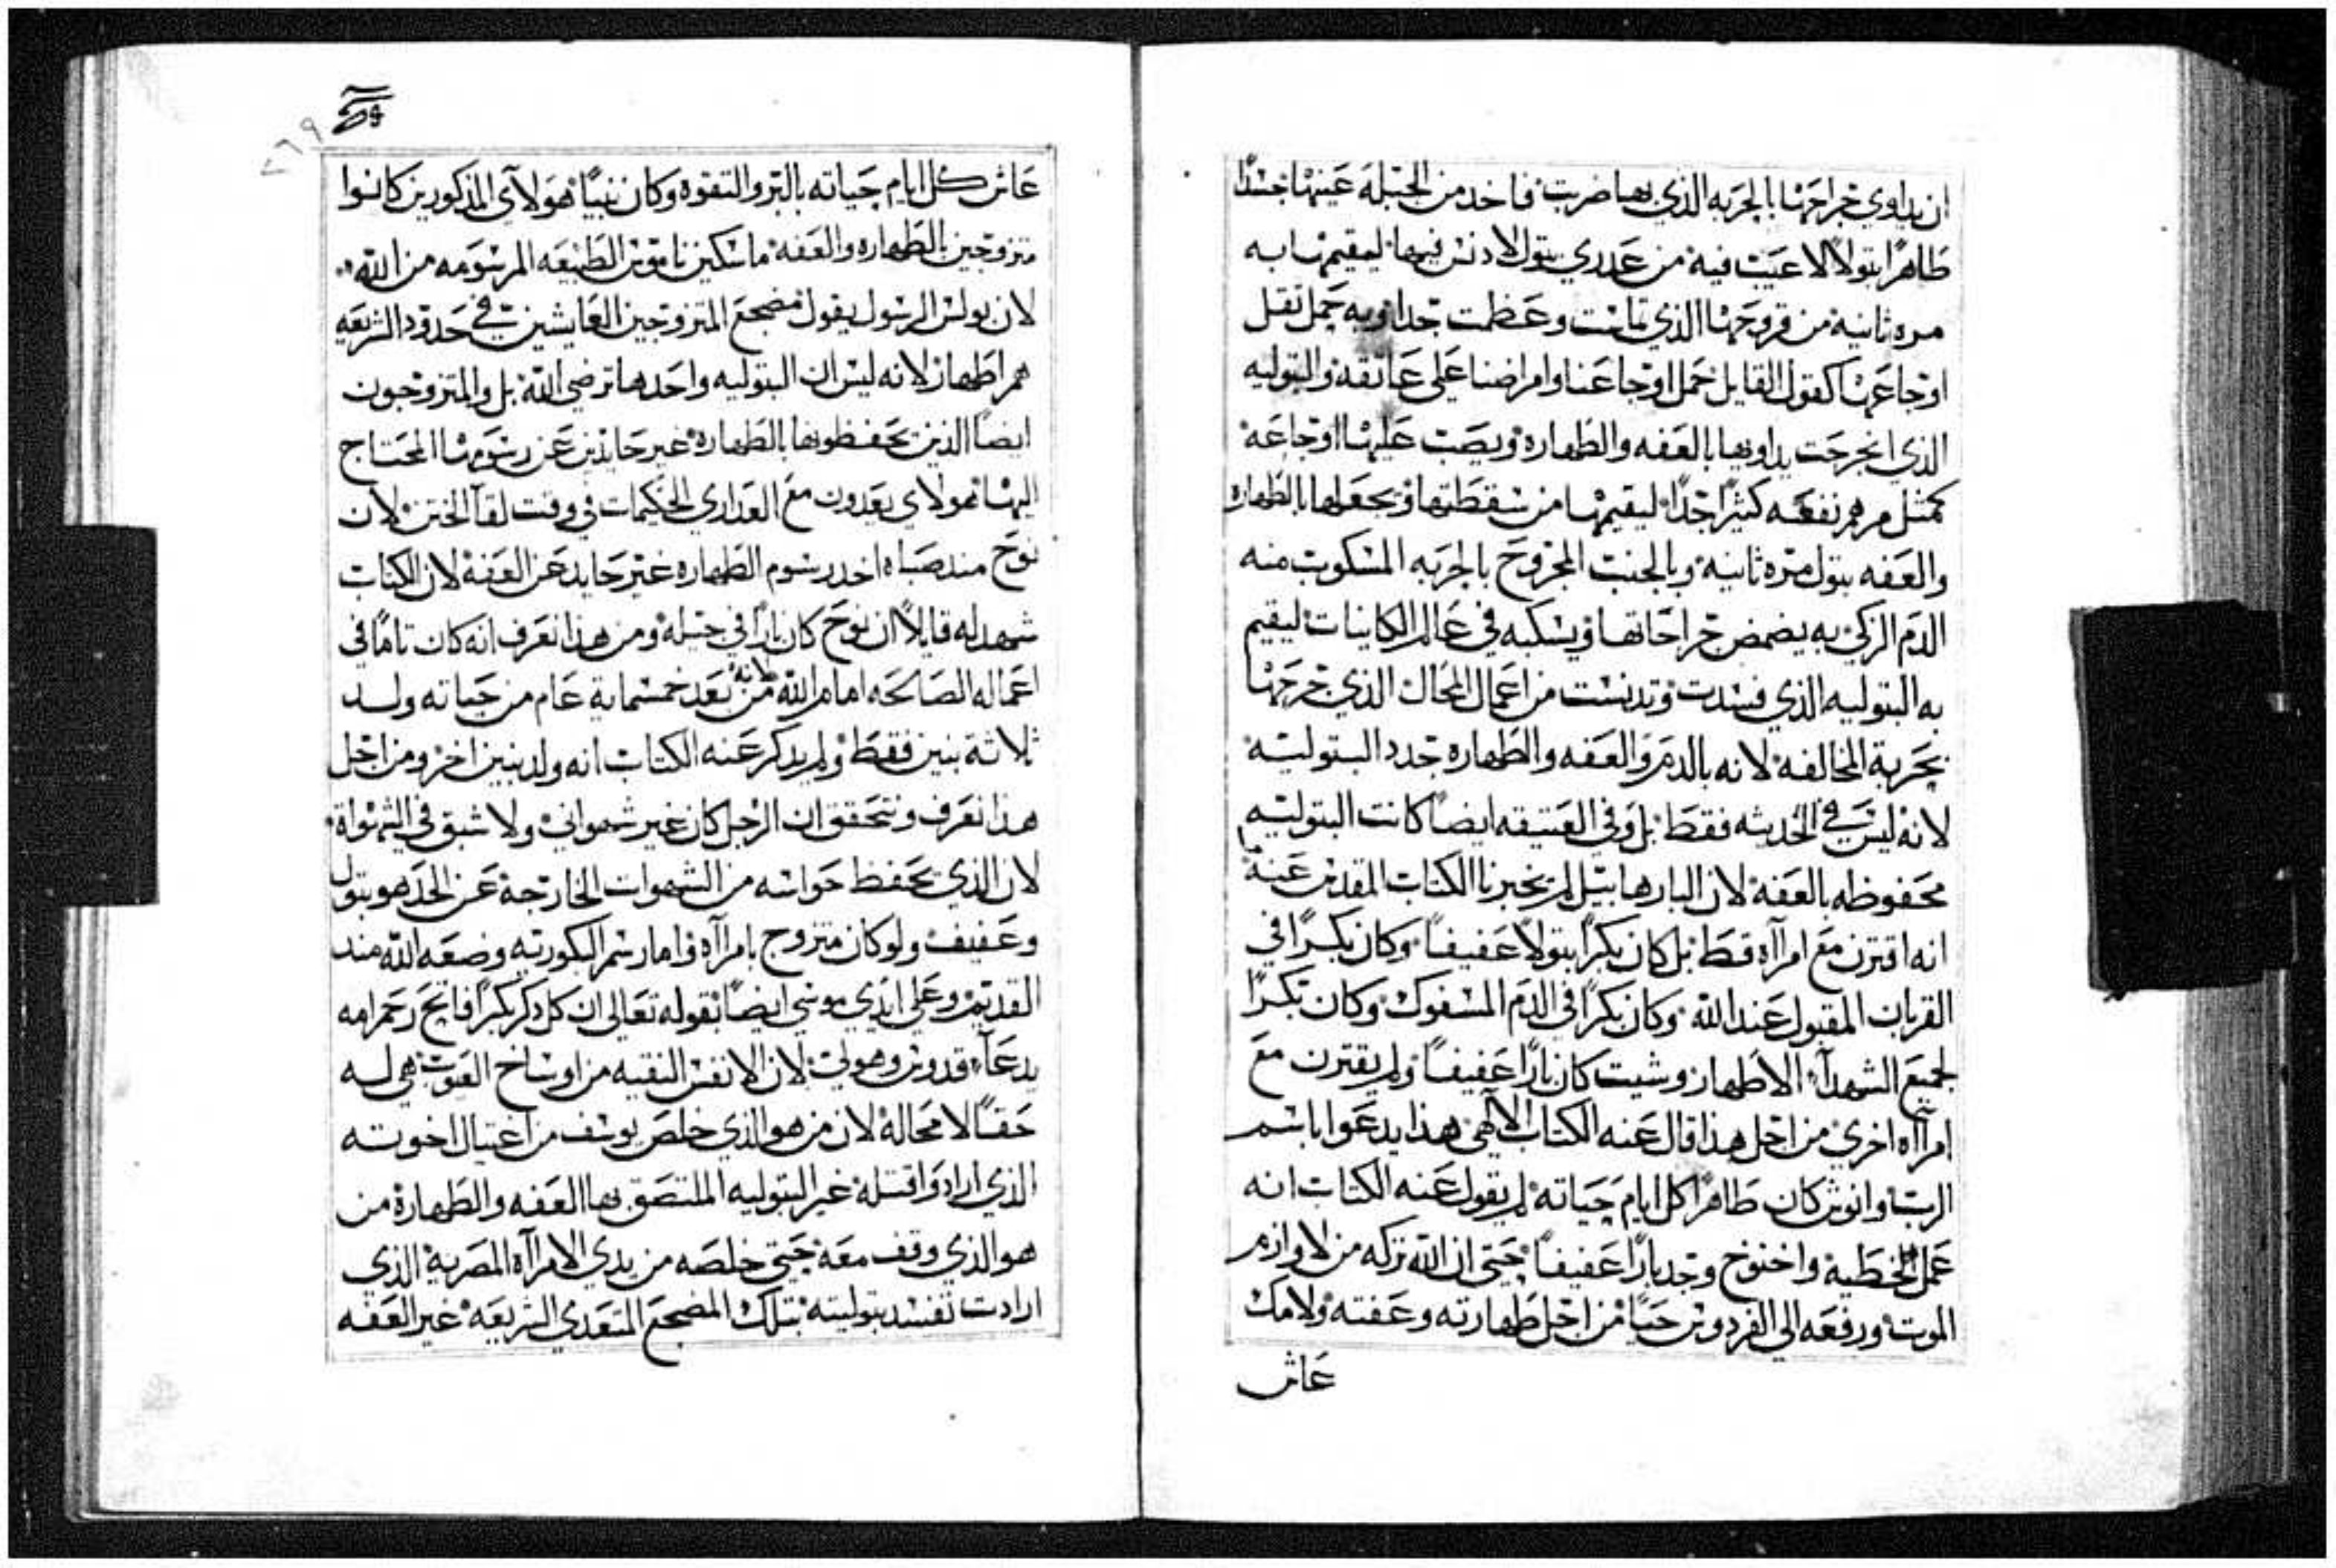 ان يداوي جراحتها بالحربه الذي بها ضربت فاخد من الجبله عينها جسدًا
طاهرًا بتولاً لا عيب فيه من عدري بتول لا دنس فيها ليقيمها به
مره ثانيه من قروحها الذي تماحت وعظمت جدا وبه حمل تقل
اوجاعها كقول القايل حمل اوجاعنا وامراضنا على عاتقه والبتوليه
الذي انجرحت يداويها بالعفه والطهاره ويصب عليها اوجاعه
كمثل مرهم نفعه كثيرًا جدًا ليقيمها من سقطتها ويجعلها بالطهاره
والعفه بتول مره ثانيه وبالجنب المجروح بالحربه المسكوب منه
الدم الزكي به يضمض جراحاتها ويسكبه في عالم الكاينات ليقيم
به البتوليه الذي فسدت وتدنست من اعمال المحال الذي جرحها
بحربة المخالفه لانه بالدم والعفه والطهاره جدد البتوليه
لانه ليس في الحديثه فقط بل وفي العتيقه ايضًا كانت البتوليه
محفوظه بالعفه لان البار هابيل لم يخبرنا الكتاب المقدس عنه
انه اقترن مع امرآاه قط بل كان بكرًا بتولاً عفيفًا وكان بكرًا في
القربان المقبول عند الله وكان بكرًا في الدم المسفوك وكان بكرًا
لجميع الشهدآء الاطهار وشيت كان بارًا عفيفًا ولم يقترن مع
امرآاه اخري من اجل هذا قال عنه الكتاب الالهي هذا يدعوا باسم
الرب وانوش كان طاهرًا كل ايام حياته لم يقول عنه الكتاب انه
عمل الخطيه واخنوخ وجد بارًا عفيفًا حتى ان الله تركه من لاوازم
الموت ورفعه الى الفردوس حيًا من اجل طهارته وعفته ولامك
عاش
عاش كل ايام حياته بالبر والتقوه وكان نبيًا هولاي المذكورين كانوا
متزوجين بالطهاره والعفه ماسكين ناموس الطبيعه المرسومه من الله
لان بولس الرسول يقول مضجع المتزوجين العايشين في حدود الشريعه
هم اطهار لانه ليس ان البتوليه واحدها ترضي الله بل والمتزوجون
ايضًا الذين يحفظونها بالطهاره غير حايدين عن رسومها المحتاج
اليها هولاي يعدون مع العداري الحكيمات في وقت لقآ الختن لان
نوح مند صباه اخد رسوم الطهاره غير حايد عن العفه لان الكتاب
شهد له قايلاً ان نوح كان بارًا في جيله ومن هذا نعرف انه كان تامًا في
اعماله الصالحه امام الله لانه من بعد خمسماية عام من حياته ولد
ثلاثة بنين فقط ولم يدكر عنه الكتاب انه ولد بنين اخر ومن اجل
هذا نعرف ونتحقق ان الرجل كان غير شهواني ولا شبق في الشهواة
لان الذي يحفظ حواسه من الشهوات الخارجة عن الحد هو بتول
وعفيف ولو كان متزوج بامرآاه وامارسم البكوريه وضعه الله مند
القديم وعلى ايدي موسي ايضًا بقوله تعالى ان كل دكر بكرًا فاتح رحم امه
يدعآ قدوس وهو لي لان الانفس النقيه من اوساخ العيوب هي له
حقًا لا محالة لان من هو الذي خلص يوسف من اغتيال اخوته
الذي ارادوا قتله غير البتوليه الملتصق بها العفه والطهارة من
هو الذي وقف معه حتى خلصه من يدي الامرآاه المصرية الذي
ارادت تفسد بتوليته بتلك المضجع المتعدي الشريعه غير العفه